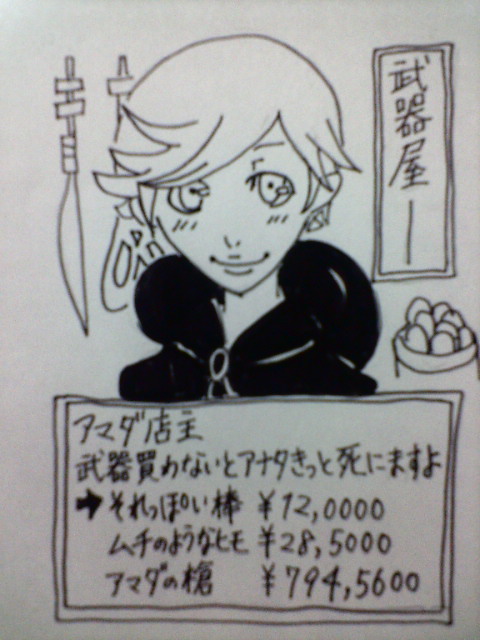 武器屋ー
Coin
アマダ店主
武器買わないとアナタきっと死にますよ
➡それっぽい棒 ¥12,0000
ムチのようなヒモ ¥28,5000
アマダの槍 ¥794,5600